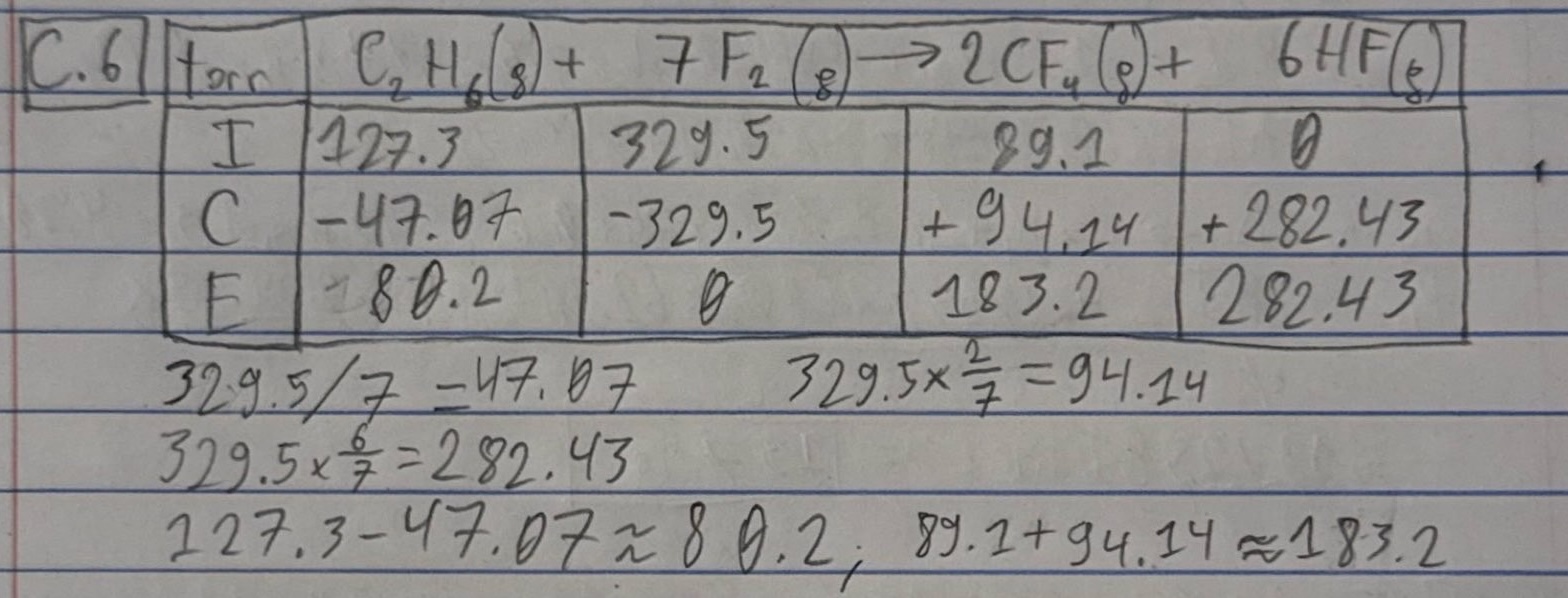 C.6 torr C₂H₆(g) + 7F₂(g) → 2CF₄(g) + 6HF(g)
I 127.3 329.5 89.1 0
C -47.07 -329.5 +94.14 +282.43
E 80.2 0 183.2 282.43
329.5/7 = 47.07 329.5 × 2/7 = 94.14
329.5 × 6/7 = 282.43
127.3 - 47.07 ≈ 80.2; 89.1 + 94.14 ≈ 183.2